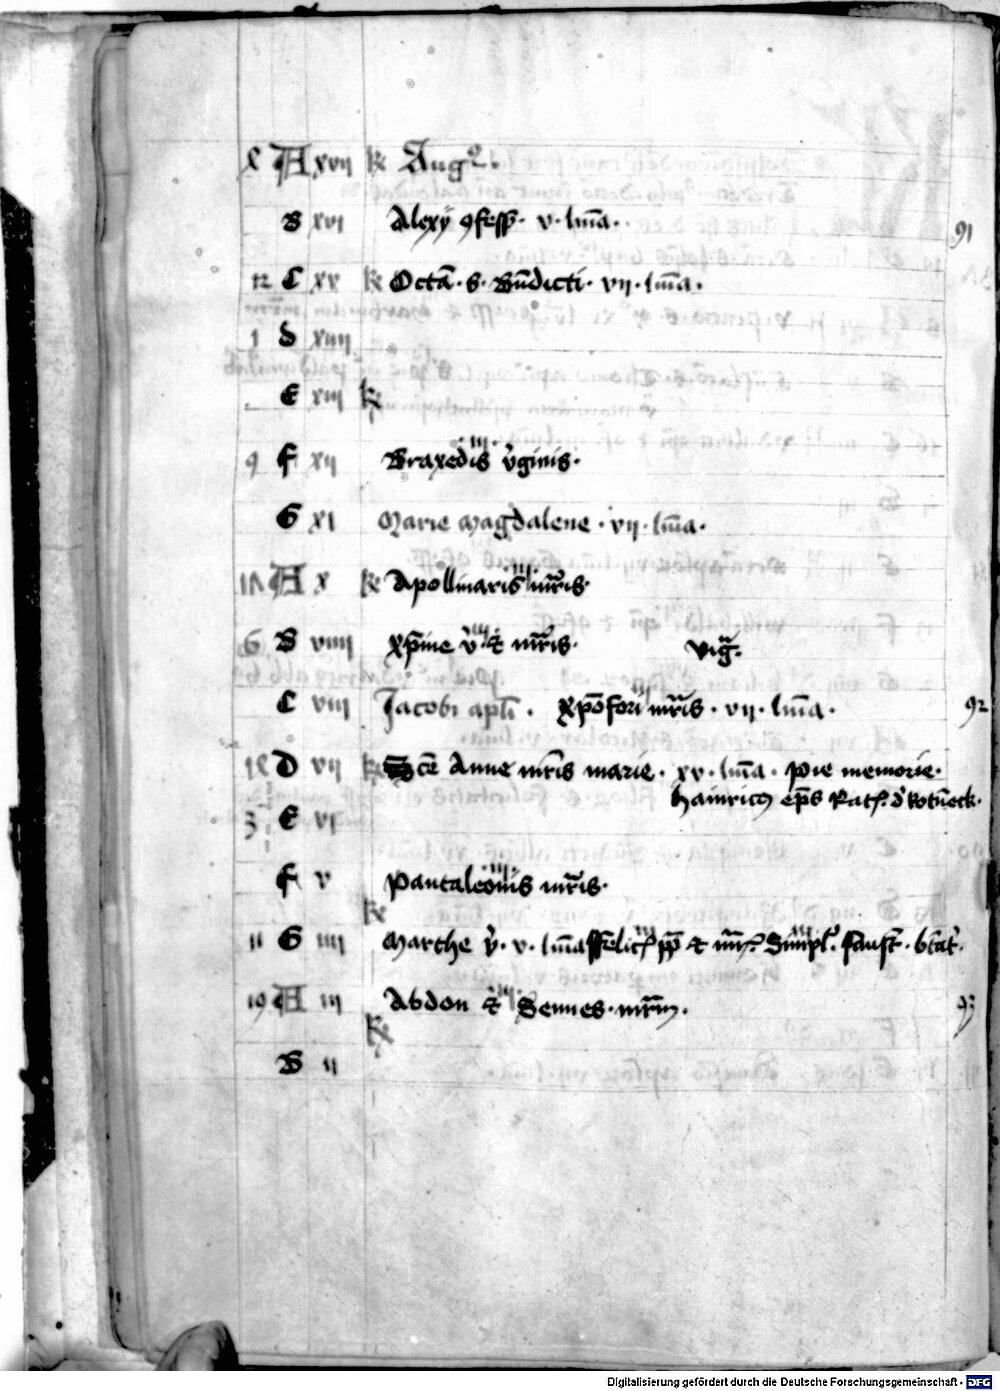 A xvii kł Augꝯ.
B xvi Alexÿ ꝯfess̄. v. lm̄a.
91
12 C xv kł Octā. s. Bn̄dicti. vii. lm̄a.
1 d xiiii
E xiii kł
9 f xii Braxedis iii. v̄ginis.
G xi Marie Magdalene. vii. lm̄a.
A x kł Apollinaris iii mr̄is.
6 B viiii xp̄ine v̄. iii et mr̄is. viḡ.
C viii Jacobi apl̄i. xp̄ofori iii mr̄is. vii. lm̄a. 92
D vii kł Sc̄e Anne mr̄is marie. xv. lm̄a. pie memorie.
hainricꝯ ep̄s Rat. d' Rotn̄eck.
3 E vi
f v Pantaleonis iii mr̄is.
kł
11 G iiii Marthe v̄. v. lm̄a ffelicꝭ iii pp̄ et mr̄. Simpl. iii faust. btāt.
19 A iii Abdon et iii Sennes. mr̄m. 93
kł
B ii
Digitalisierung gefördert durch die Deutsche Forschungsgemeinschaft - DFG